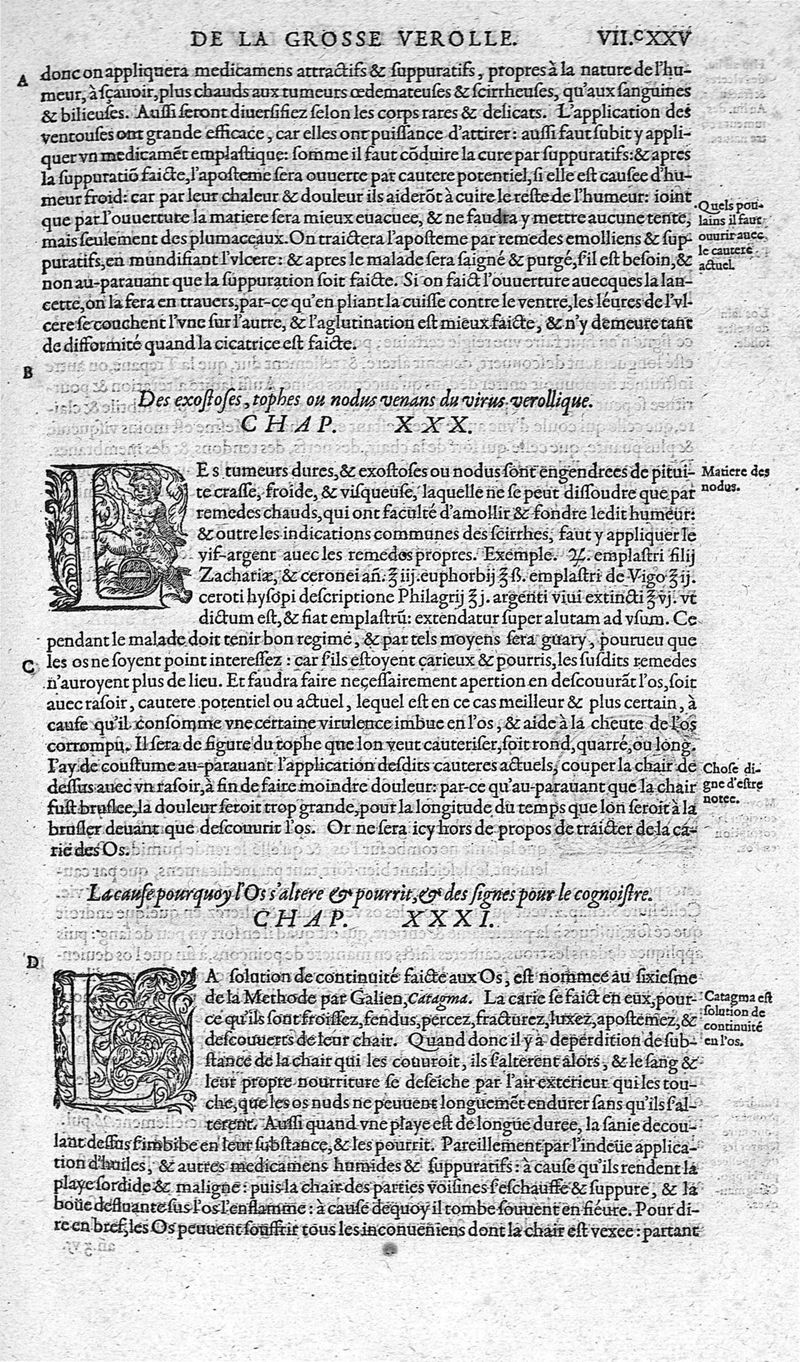 DE LA GROSSE VEROLLE. VII.CXXV
A
donc on appliquera medicamens attractifs & suppuratifs, propres à la nature de l'hu-
meur, à sçauoir, plus chauds aux tumeurs œdemateuses & scirrheuses, qu'aux sanguines
& bilieuses. Aussi seront diuersifiez selon les corps rares & delicats. L'application des
ventouses ont grande efficace, car elles ont puissance d'attirer: aussi faut subit y appli-
quer vn medicamẽt emplastique: somme il faut cõduire la cure par suppuratifs: & apres
la suppuratiõ faicte, l'aposteme sera ouuerte par cautere potentiel, si elle est causee d'hu-
meur froid: car par leur chaleur & douleur ils aiderõt à cuire le reste de l'humeur: ioint
que par l'ouuerture la matiere sera mieux euacuee, & ne faudra y mettre aucune tente,
mais seulement des plumaceaux. On traictera l'aposteme par remedes emolliens & sup-
puratifs, en mundifiant l'vlcere: & apres le malade sera saigné & purgé, s'il est besoin, &
non au-parauant que la suppuration soit faicte. Si on faict l'ouuerture auecques la lan-
cette, on la fera en trauers, par-ce qu'en pliant la cuisse contre le ventre, les léures de l'vl-
cere se couchent l'vne sur l'autre, & l'aglutination est mieux faicte, & n'y demeure tant
de difformité quand la cicatrice est faicte.
Quels pou-
lains il faut
ouurir auec
le cautere
actuel.
B
Des exostoses, tophes ou nodus venans du virus verollique.
CHAP. XXX.
LEs tumeurs dures, & exostoses ou nodus sont engendrees de pitui-
te crasse, froide, & visqueuse, laquelle ne se peut dissoudre que par
remedes chauds, qui ont faculté d'amollir & fondre ledit humeur:
& outre les indications communes des scirrhes, faut y appliquer le
vif-argent auec les remedes propres. Exemple. ♃. emplastri filij
Zachariæ, & ceronei añ. ℥iij. euphorbij ℥ß. emplastri de Vigo ℥ij.
ceroti hysopi descriptione Philagrij ℥j. argenti viui extincti ℥vj. vt
dictum est, & fiat emplastrũ: extendatur super alutam ad vsum. Ce
pendant le malade doit tenir bon regimé, & par tels moyens sera guary, pourueu que
Matiere des
nodus.
C
les os ne soyent point interessez: car s'ils estoyent carieux & pourris, les susdits remedes
n'auroyent plus de lieu. Et faudra faire necessairement apertion en descouurãt l'os, soit
auec rasoir, cautere potentiel ou actuel, lequel est en ce cas meilleur & plus certain, à
cause qu'il consomme vne certaine virulence imbue en l'os, & aide à la cheute de l'os
corrompu. Il sera de figure du tophe que lon veut cauteriser, soit rond, quarré, ou long.
I'ay de coustume au-parauant l'application desdits cauteres actuels, couper la chair de
dessus auec vn rasoir, à fin de faire moindre douleur: par-ce qu'au-parauant que la chair
fust bruslee, la douleur seroit trop grande, pour la longitude du temps que lon seroit à la
brusler deuant que descouurir l'os. Or ne sera icy hors de propos de traicter de la ca-
rie des Os.
Chose di-
gne d'estre
notee.
La cause pourquoy l'Os s'altere & pourrit, & des signes pour le cognoistre.
CHAP. XXXI.
D
LA solution de continuité faicte aux Os, est nommee au sixiesme
de la Methode par Galien, Catagma. La carie se faict en eux, pour-
ce qu'ils sont froissez, fendus, percez, fracturez, luxez, apostemez, &
descouuerts de leur chair. Quand donc il y à deperdition de sub-
stance de la chair qui les couuroit, ils s'alterent alors, & le sang &
leur propre nourriture se deseiche par l'air exterieur qui les tou-
che, que les os nuds ne peuuent longuemẽt endurer sans qu'ils s'al-
terent. Aussi quand vne playe est de longue duree, la sanie decou-
lant dessus s'imbibe en leur substance, & les pourrit. Pareillement par l'indeüe applica-
tion d'huiles, & autres medicamens humides & suppuratifs: à cause qu'ils rendent la
playe sordide & maligne: puis la chair des parties voisines s'eschauffe & suppure, & la
boüe defluante sus l'os l'enflamme: à cause dequoy il tombe souuent en fiéure. Pour di-
re en bref, les Os peuuent souffrir tous les inconueniens dont la chair est vexee: partant
Catagma est
solution de
continuité
en l'os.